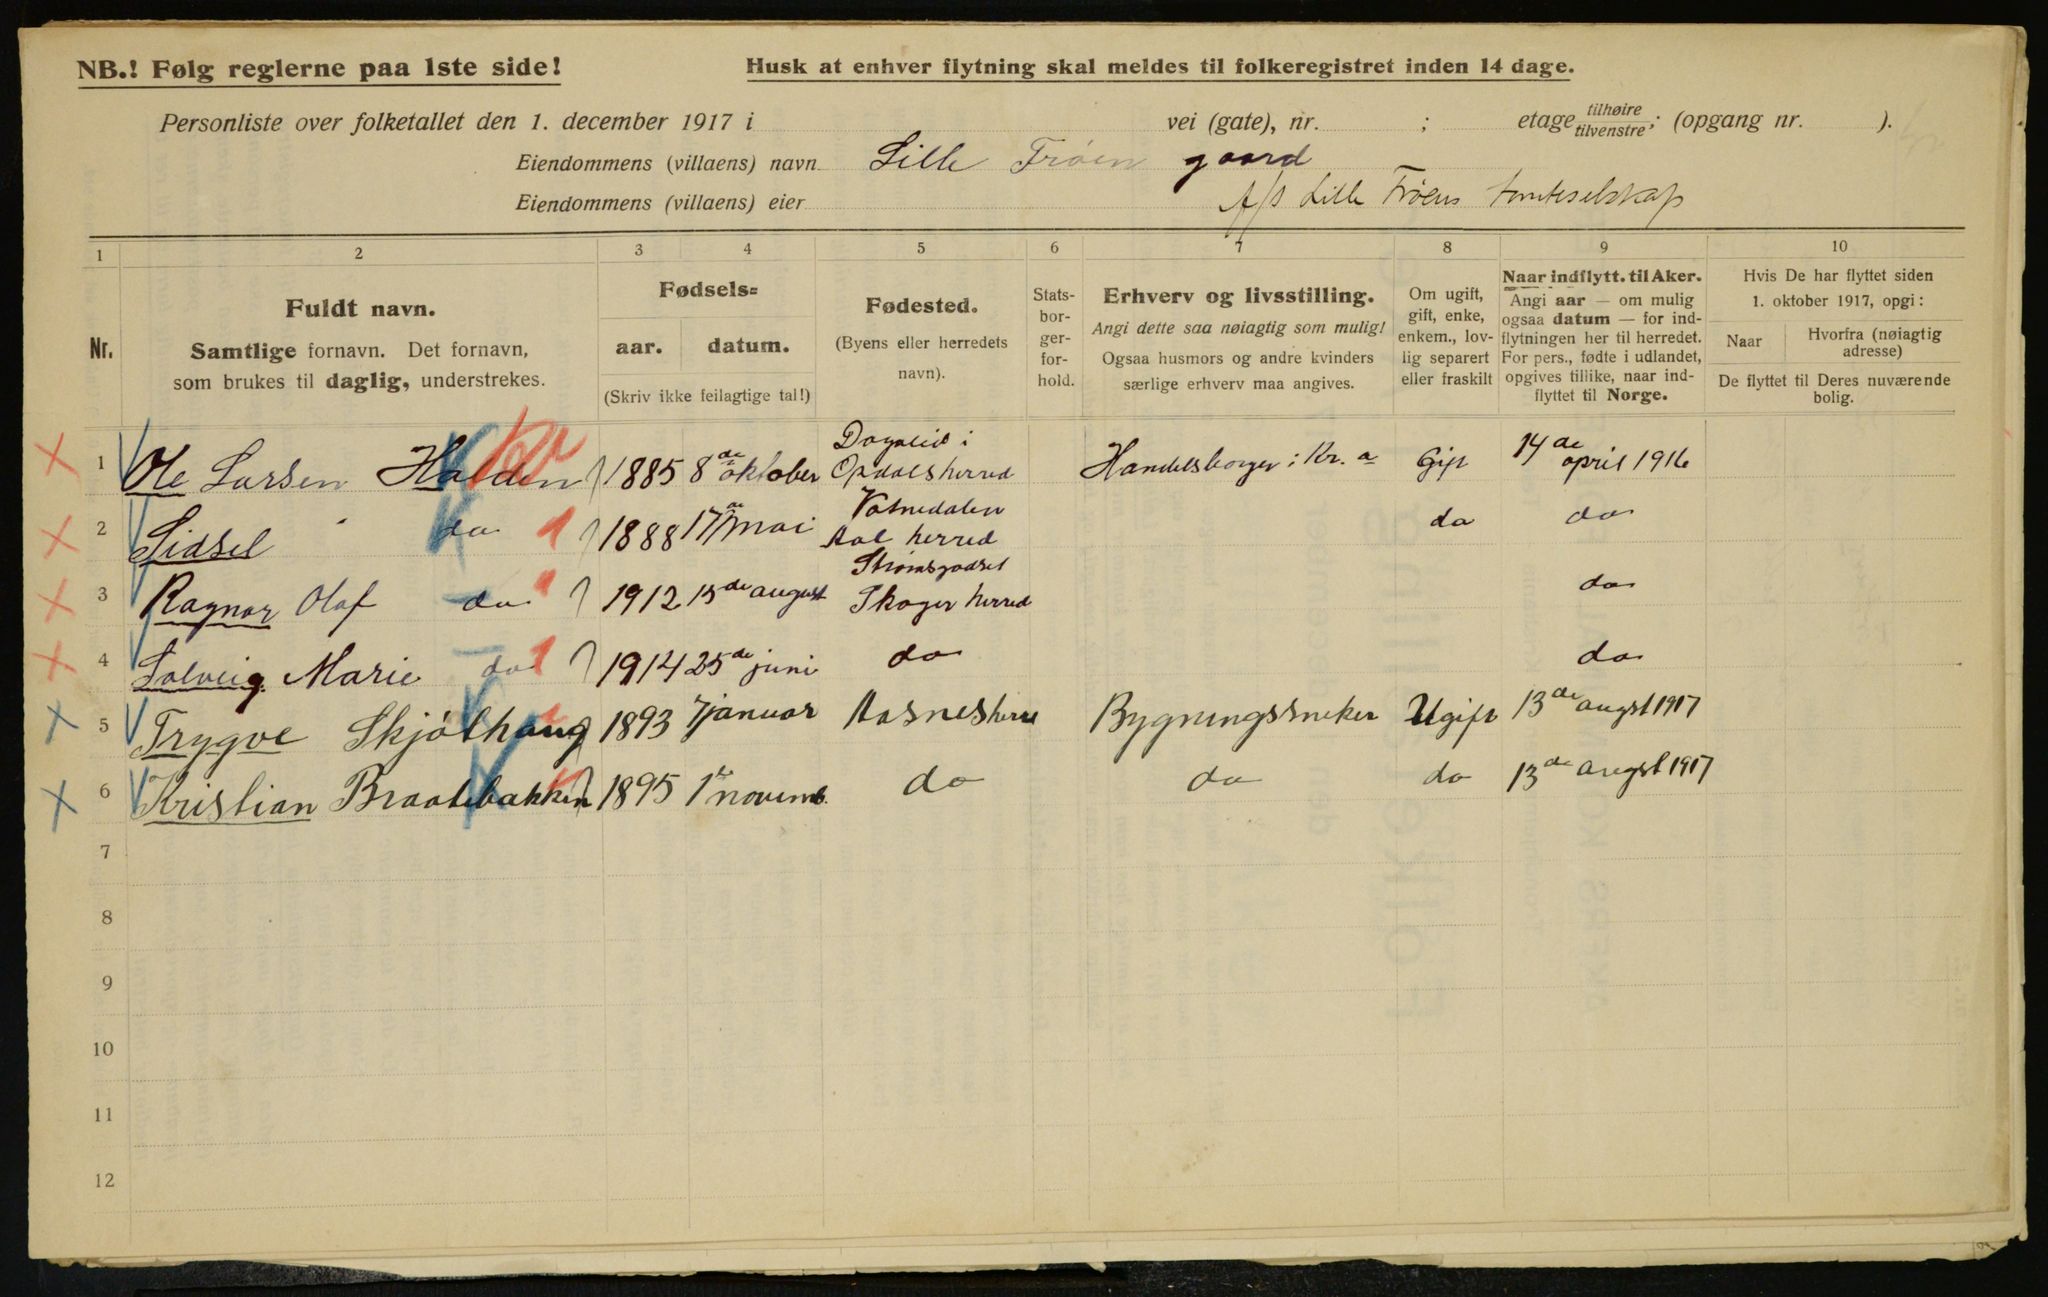 NB.! Følg reglerne paa 1ste side!
Husk at enhver flytning skal meldes til folkeregistret inden 14 dage.
Personliste over folketallet den 1. december 1917 i vei (gate), nr. ; etage tilhøire tilvenstre; (opgang nr. ).
Eiendommens (villaens) navn Lille Frøen gaard
Eiendommens (villaens) eier A/S Lille Frøens tomteselskap
1 2 3 4 5 6 7 8 9 10
Nr.
Fuldt navn.
Samtlige fornavn. Det fornavn,
som brukes til daglig, understrekes.
Fødsels=
aar. datum.
(Skriv ikke feilagtige tal!)
Fødested.
(Byens eller herredets
navn).
Stats-
bor-
ger-
for-
hold.
Erhverv og livsstilling.
Angi dette saa nøiagtig som mulig!
Ogsaa husmors og andre kvinders
særlige erhverv maa angives.
Om ugift,
gift, enke,
enkem., lov-
lig separert
eller fraskilt
Naar indflytt. til Aker.
Angi aar — om mulig
ogsaa datum — for ind-
flytningen her til herredet.
For pers., fødte i udlandet,
opgives tillike, naar ind-
flyttet til Norge.
Hvis De har flyttet siden
1. oktober 1917, opgi:
Naar
Hvorfra (nøiagtig
adresse)
De flyttet til Deres nuværende
bolig.
1 Ole Larsen Halden 1885 8de oktober Dagalid i Opdals herred Handelsborger i Kr.a Gift 14de april 1916
2 Sidsel do 1888 17de mai Vatnedalen Aal herred do do
3 Ragnar Olaf do 1912 15de august Strømsgodset Skoger herred do
4 Solveig Marie do 1914 25de juni do do
5 Trygve Skjølhaug 1893 7 januar Aasnes herre Bygningssneker Ugift 13de augst 1917
6 Kristian Braatebakken 1895 1ste novemb. do do do 13de augst 1917
7
8
9
10
11
12